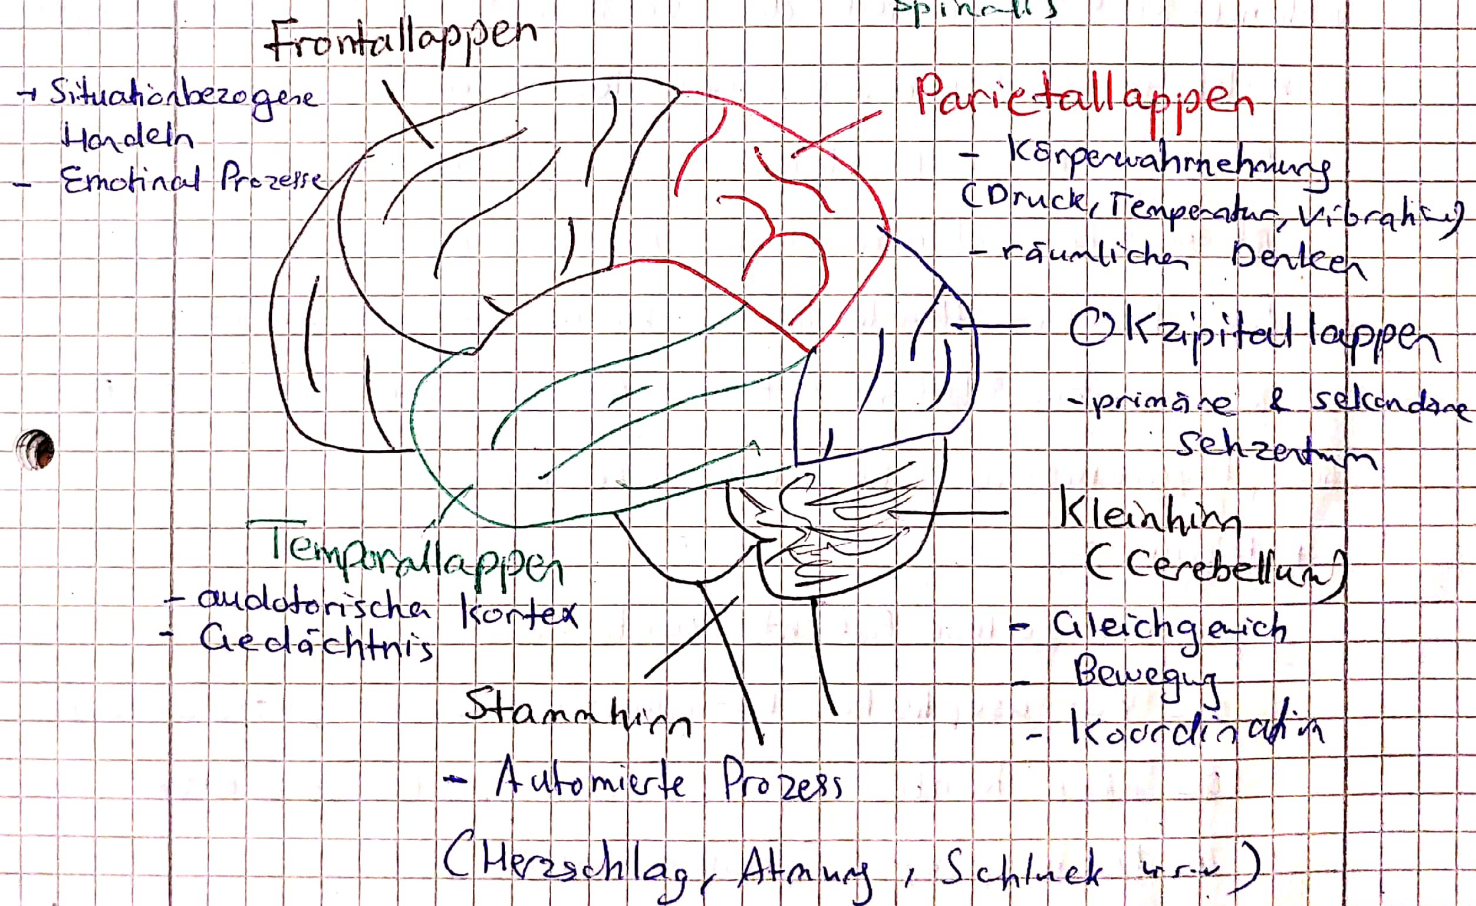 spinalis
Frontallappen
→ Situationbezogene
Handeln
- Emotinal Prozesse
Parietallappen
- Körperwahrnehmung
(Druck, Temperatur, Vibration)
- räumlichen Denken
Okzipitallappen
- primäre & sekundäre
Sehzentrum
Kleinhirn
(Cerebellum)
- Gleichgewich
- Bewegug
- Koordination
Temporallappen
- audotorischer Kortex
- Gedächtnis
Stammhirn
- Automierte Prozess
(Herzschlag, Atmung, Schluck usw)